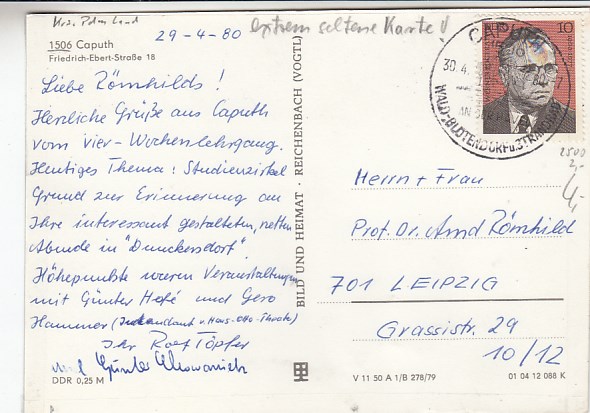 Krs. Potsdam Land
extrem seltene Karte !
29-4-80
1506 Caputh
Friedrich-Ebert-Straße 18
Liebe Römhilds !
Herzliche Grüße aus Caputh
vom vier-Wochenlehrgang.
Heutiges Thema: Studienzirkel
Grund zur Erinnerung an
Ihre interessant gestalteten, netten
Abende in "Dunckersdorf".
Höhepunkte waren Veranstaltungen
mit Günter Hofé und Gero
Hammer (Intendant v. Hans-Otto-Theater)
Ihr Rolf Töpfer
und Günter
DDR 0,25 M
BILD UND HEIMAT · REICHENBACH (VOGTL)
V 11 50 A 1/B 278/79
01 04 12 088 K
CAPUTH
30.4.
WALD-BLÜTENDORF u. STRANDBAD
10
2500
2,-
4,-
Herrn + Frau
Prof. Dr. Arnd Römhild
701 LEIPZIG
Grassistr. 29
10/12